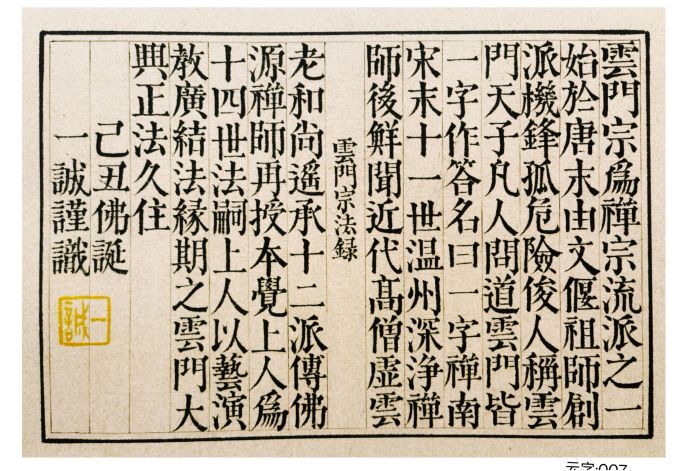 雲門宗爲禪宗流派之一
始於唐末由文偃祖師創
派機鋒孤危險俊人稱雲
門天子凡人問道雲門皆
一字作答名曰一字禪南
宋末十一世温州深净禪
師後鮮聞近代高僧虛雲
雲門宗法録
老和尚遥承十二派傳佛
源禪師再授本覺上人爲
十四世法嗣上人以藝演
教廣結法緣期之雲門大
興正法久住
己丑佛誕
一誠謹識
一誠